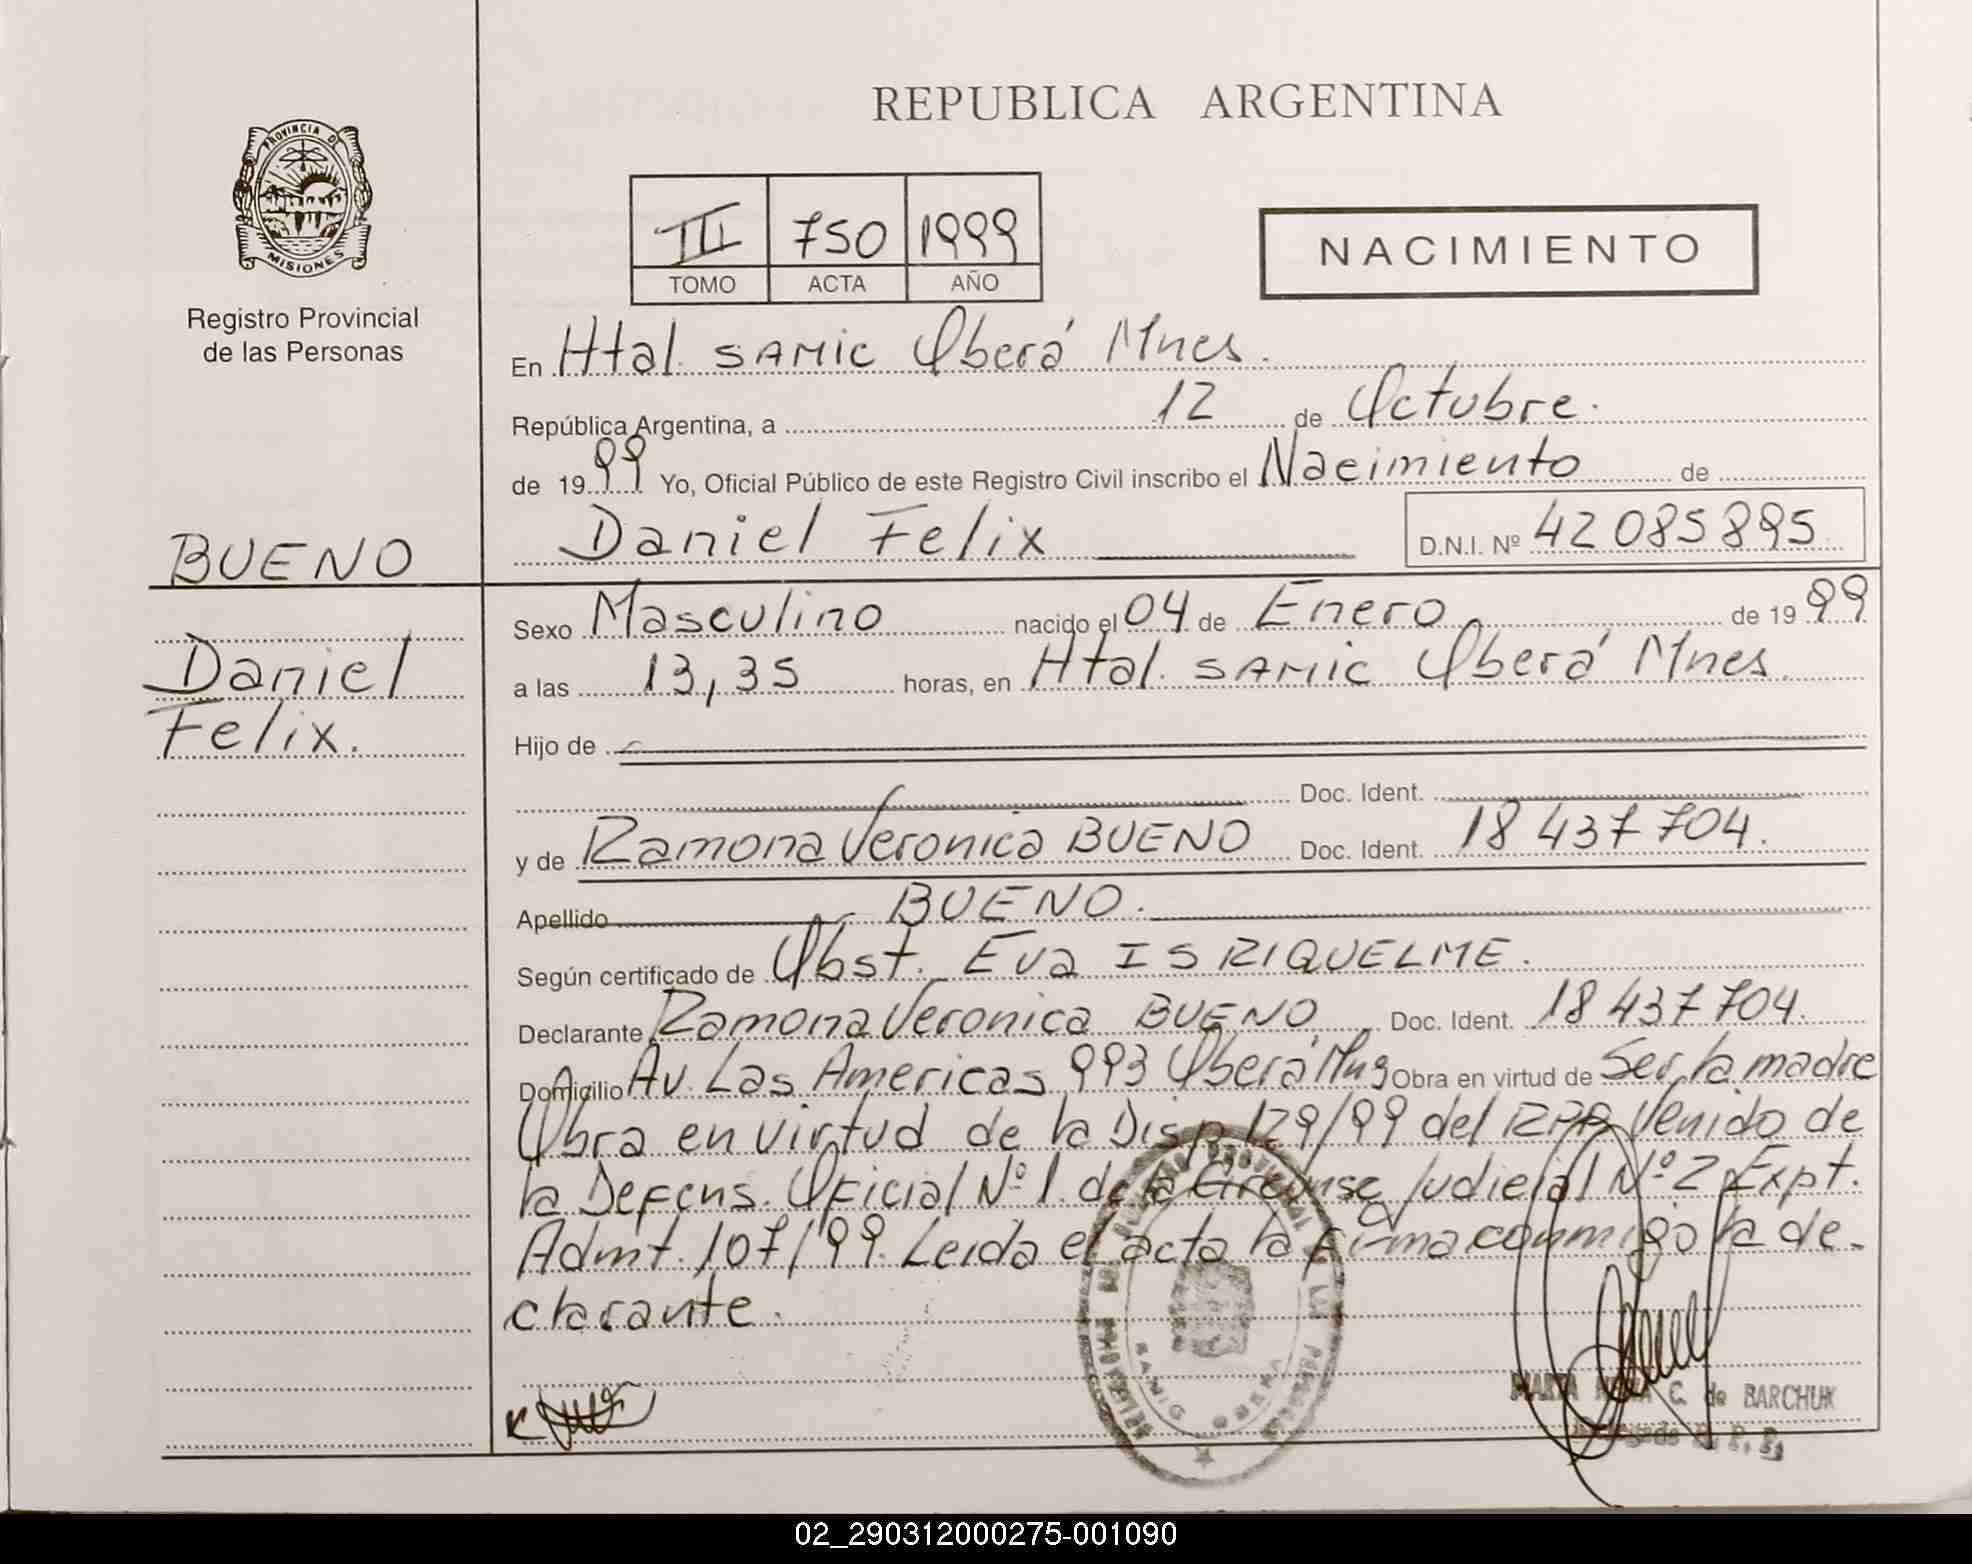 REPUBLICA ARGENTINA
PROVINCIA DE
MISIONES
Registro Provincial
de las Personas
III 750 1999
TOMO ACTA AÑO
NACIMIENTO
En Htal. SAMIC Oberá Mnes.
República Argentina, a 12 de Octubre.
de 1999 Yo, Oficial Público de este Registro Civil inscribo el Nacimiento de
Daniel Felix D.N.I. Nº 42 085 895
BUENO
Daniel
Felix.
Sexo Masculino nacido el 04 de Enero de 1999
a las 13,35 horas, en Htal. SAMIC Oberá Mnes.
Hijo de
Doc. Ident.
y de Ramona Veronica BUENO Doc. Ident. 18 437 704.
Apellido BUENO.
Según certificado de Obst. Eva IS RIQUELME.
Declarante Ramona Veronica BUENO Doc. Ident. 18 437 704.
Domicilio Av. Las Americas 993 Oberá Mns Obra en virtud de Ser la madre
Obra en virtud de la Disp. 129/99 del RPP Venido de
la Defens. Oficial Nº 1. de la Circunsc Judicial Nº 2 Expt.
Admt. 107/99. Leida el acta la firma conmigo la de-
clarante.
C. de BARCHUK
R. P. P.
02_290312000275-001090